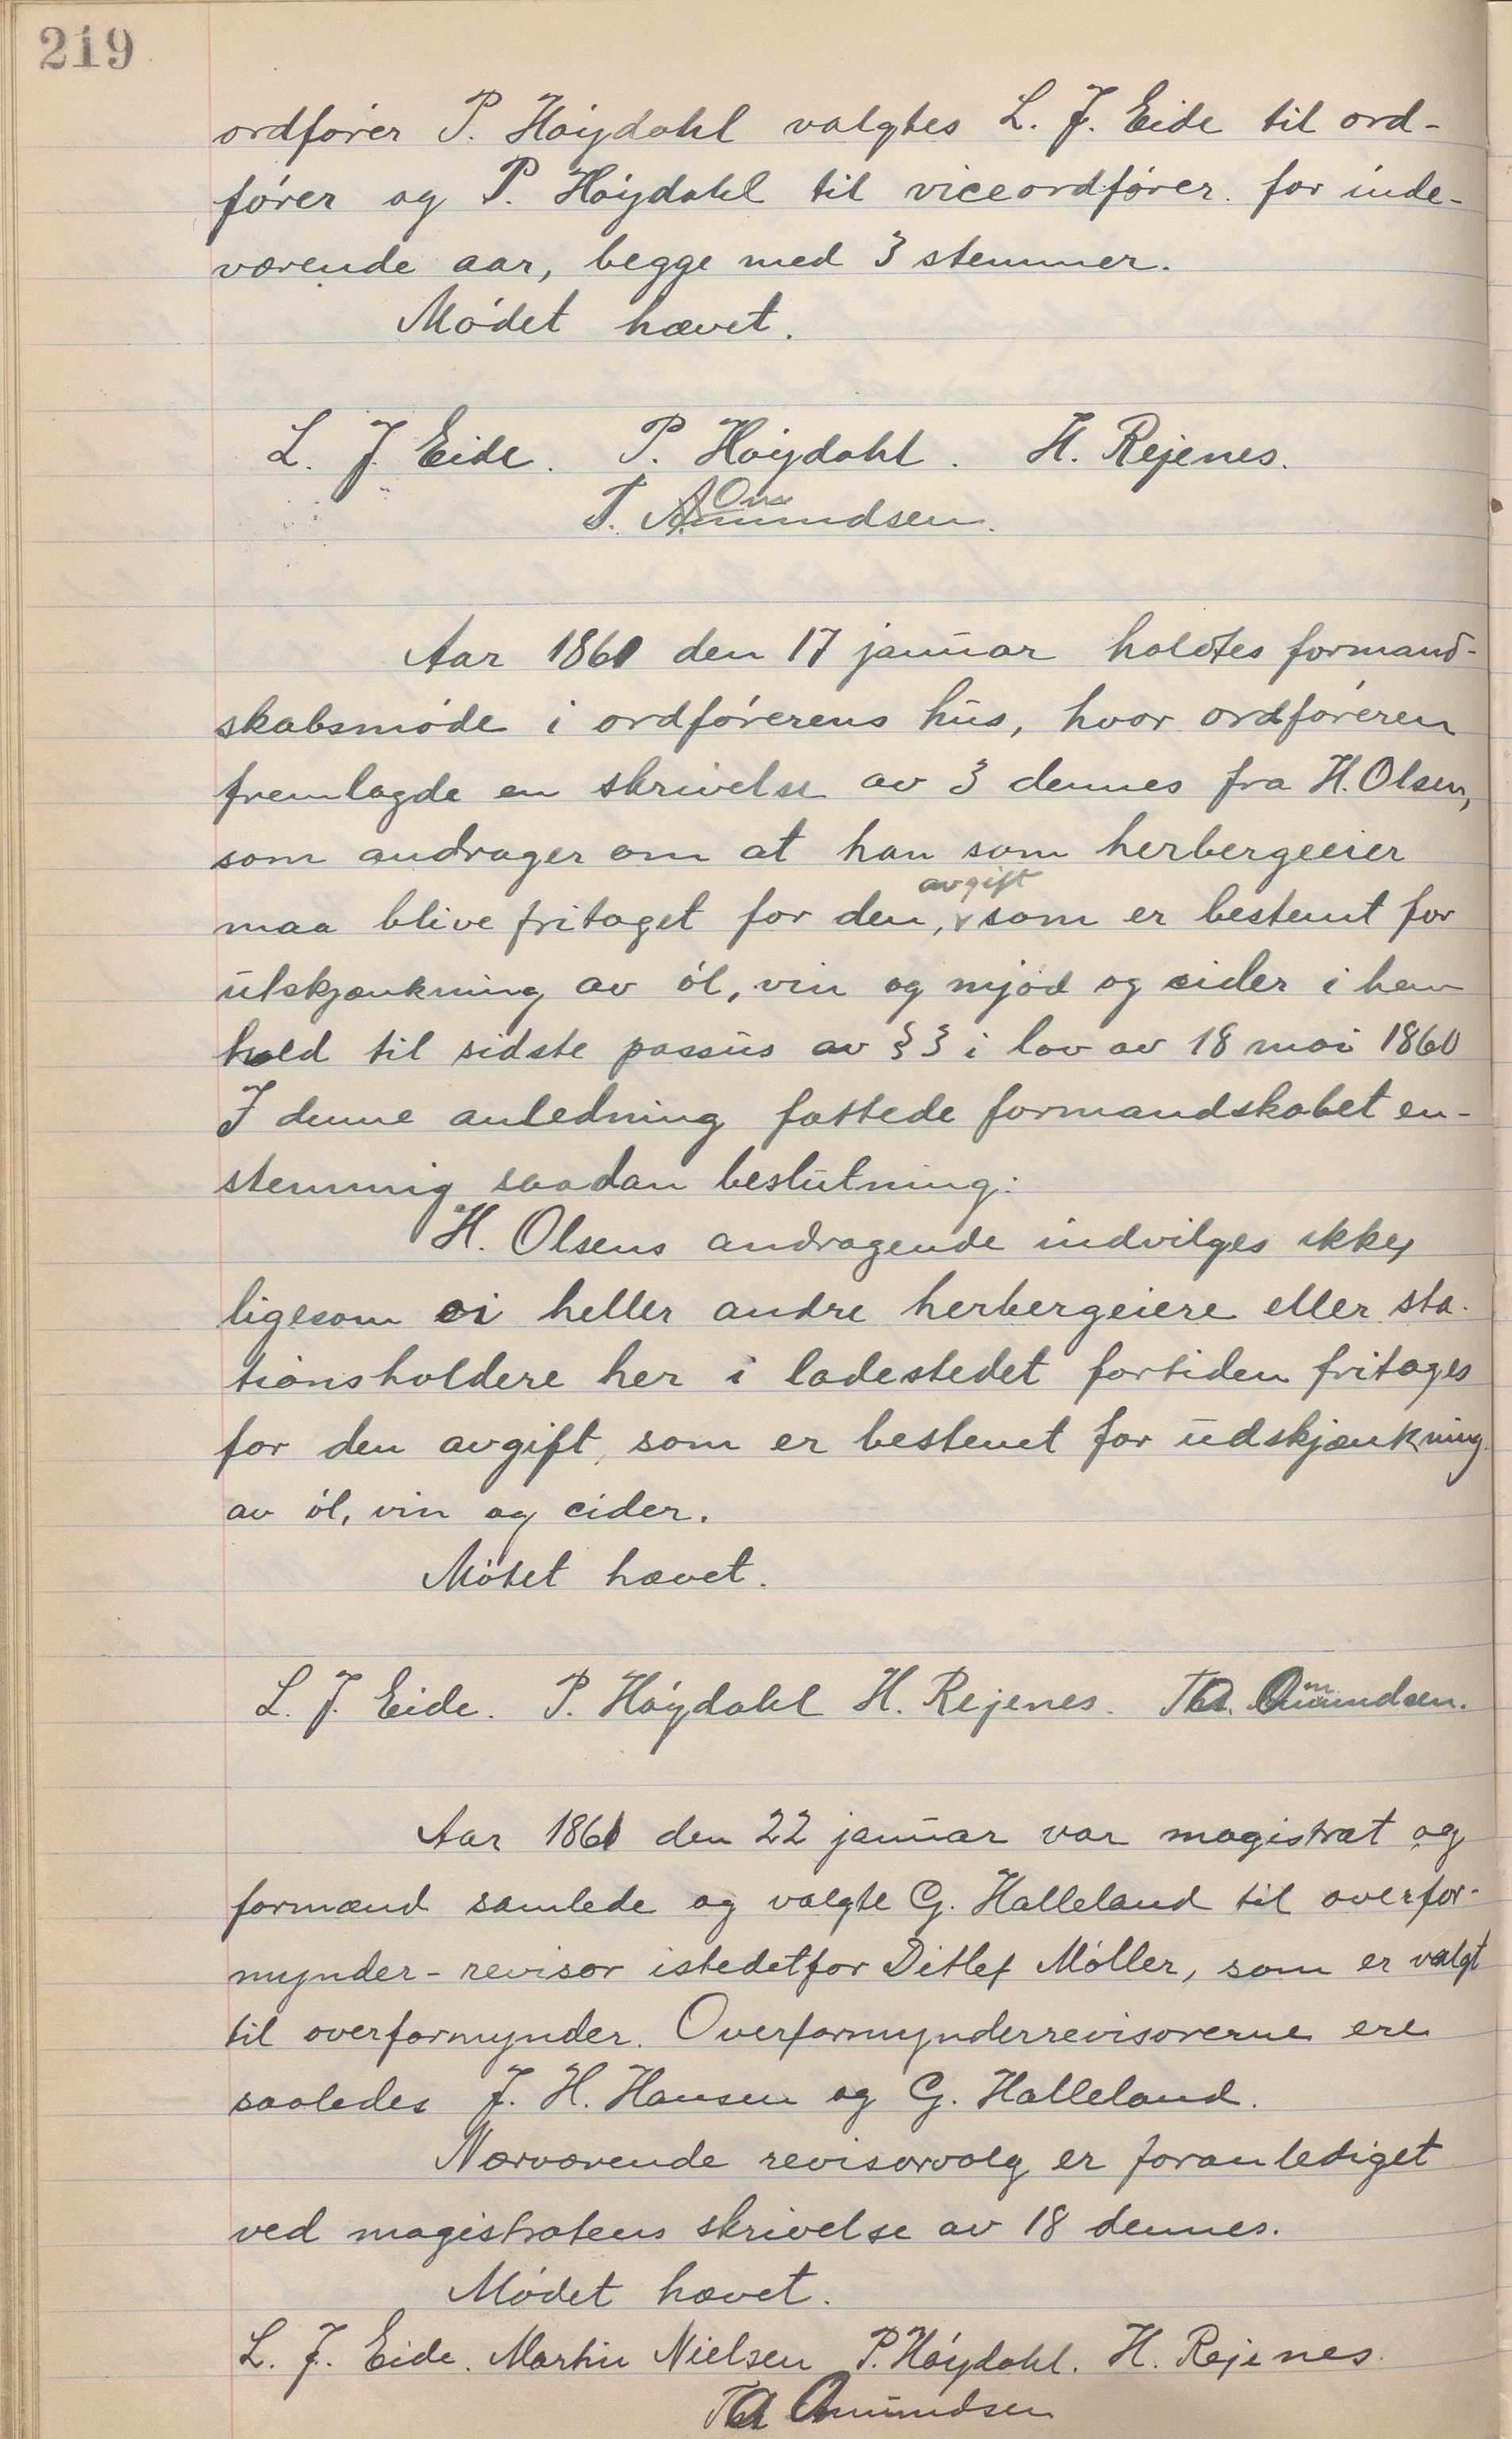 219
ordfører P. Høydahl valgtes L. J. Eide til ord-
fører og P. Høydahl til viceordfører for inde-
værende aar, begge med 3 stemmer.
Mødet hævet.
L. J. Eide. P. Høydahl. H. Rejenes.
T. Amundsen.
Aar 1861 den 17 januar holdtes formand-
skabsmøde i ordførerens hus, hvor ordføreren
fremlagde en skrivelse av 3 dennes fra H. Olsen,
som andrager om at han som herbergeeier
avgift
maa blive fritaget for den, som er bestemt for
utskjænkning av øl, vin og mjød og cider i hen
hold til sidste passus av § 3 i lov av 18 mai 1860
I denne anledning fattede formandskabet en-
stemmig saadan beslutning:
H. Olsens andragende indvilges ikke,
ligesom ei heller andre herbergeiere eller sta-
tionsholdere her i ladestedet fortiden fritages
for den avgift, som er bestemt for udskjænkning
av øl, vin og cider.
Møtet hævet.
L. J. Eide. P. Høydahl H. Rejenes. Omundsen.
Aar 1861 den 22 januar var magistrat og
formænd samlede og valgte G. Halleland til overfor-
mynder-revisor istedetfor Ditlef Møller, som er valgt
til overformynder. Overformynderrevisorerne ere
saaledes J. H. Hansen og G. Halleland.
Nærværende revisorvalg er foranlediget
ved magistratens skrivelse av 18 dennes.
Mødet hævet.
L. J. Eide. Martin Nielsen P. Høydahl. H. Rejenes.
Omundsen